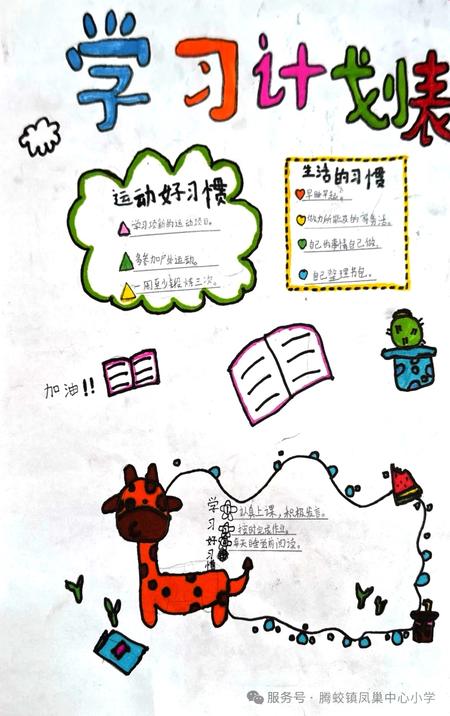 学习计划表
运动好习惯
学习项新的运动项目。
多参加户外运动。
一周至少锻炼三次。
生活的习惯
早睡早起。
做力所能及的家务活。
自己的事情自己做。
自己整理书包。
加油!!
学习好习惯
认真上课，积极发言。
按时完成作业。
每天睡前阅读。
服务号·腾蛟镇凤巢中心小学